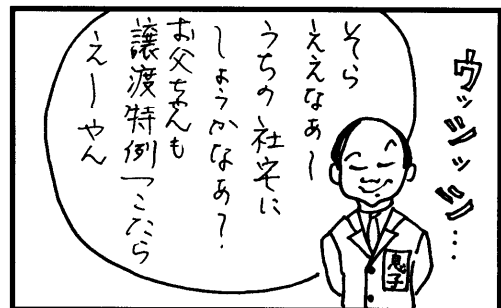 ウッシッシ…
そら
ええなぁ～
うちの社宅に
しょうかなぁ？
お父ちゃんも
譲渡特例つこたら
えーやん
息子